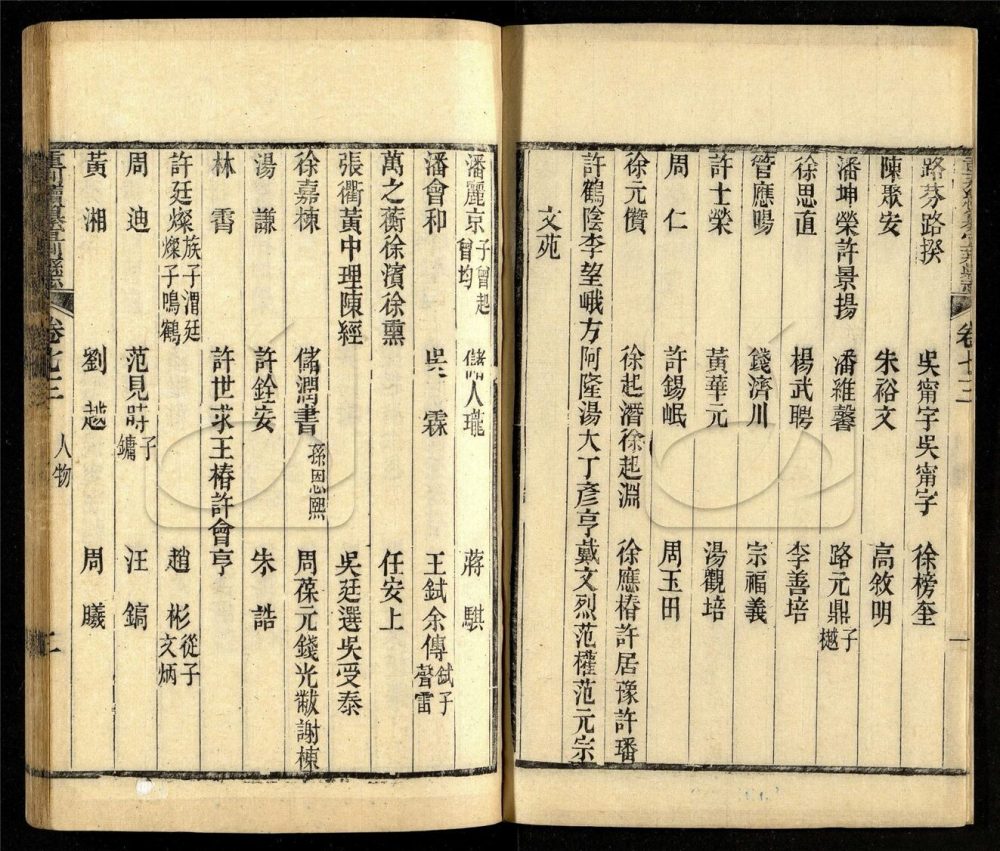 路芬路揆 吳甯字吳甯字 徐榜奎
陳聚安 朱裕文 高敘明
潘坤榮許景揚 潘維馨 路元鼎子樾
徐思直 楊武聘 李善培
管應暘 錢濟川 宗福義
許士榮 黃華元 湯觀培
周仁 許錫岷 周玉田
徐元儧 徐起潛徐起淵 徐應椿許居豫許璠
許鶴陰李望峨方阿隆湯大丁彥亨戴文烈范權范元宗
文苑
卷七三
一
潘麗京子曾起曾均 儲人瓏 蔣騏
潘會和 吳霖 王鉽余傳鉽子聲雷
萬之蘅徐濱徐熏 任安上
張衢黃中理陳經 吳廷選吳受泰
徐嘉棟 儲潤書孫恩熙 周葆元錢光黻謝棟
湯謙 許銓安 朱誥
林霱 許世求王椿許會亨
許廷燦族子渭廷燦子鳴鶴 趙彬從子文炳
周迪 范見時子鏞 汪鎬
黃湘 劉越 周曦
卷七三 人物 二